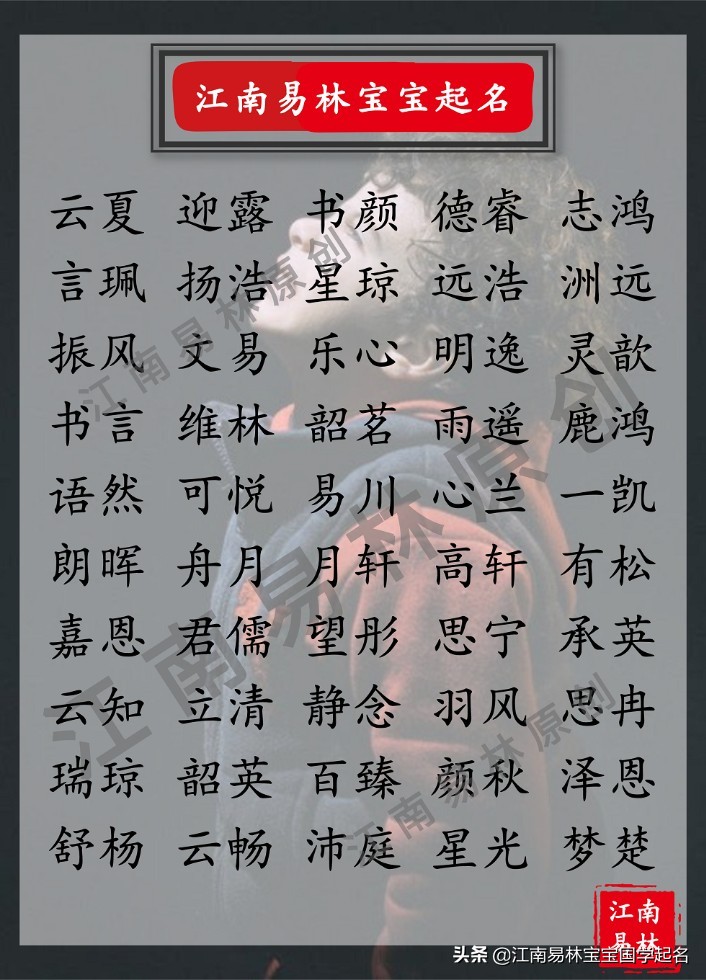 江南易林宝宝起名
云夏 迎露 书颜 德睿 志鸿
言珮 扬浩 星琼 远浩 洲远
振风 文易 乐心 明逸 灵歆
书言 维林 韶茗 雨遥 鹿鸿
语然 可悦 易川 心兰 一凯
朗晖 舟月 月轩 高轩 有松
嘉恩 君儒 望彤 思宁 承英
云知 立清 静念 羽风 思冉
瑞琼 韶英 百臻 颜秋 泽恩
舒杨 云畅 沛庭 星光 梦楚
江南易林原创
江南易林原创
江南易林原创
江南
易林
头条 @江南易林宝宝国学起名